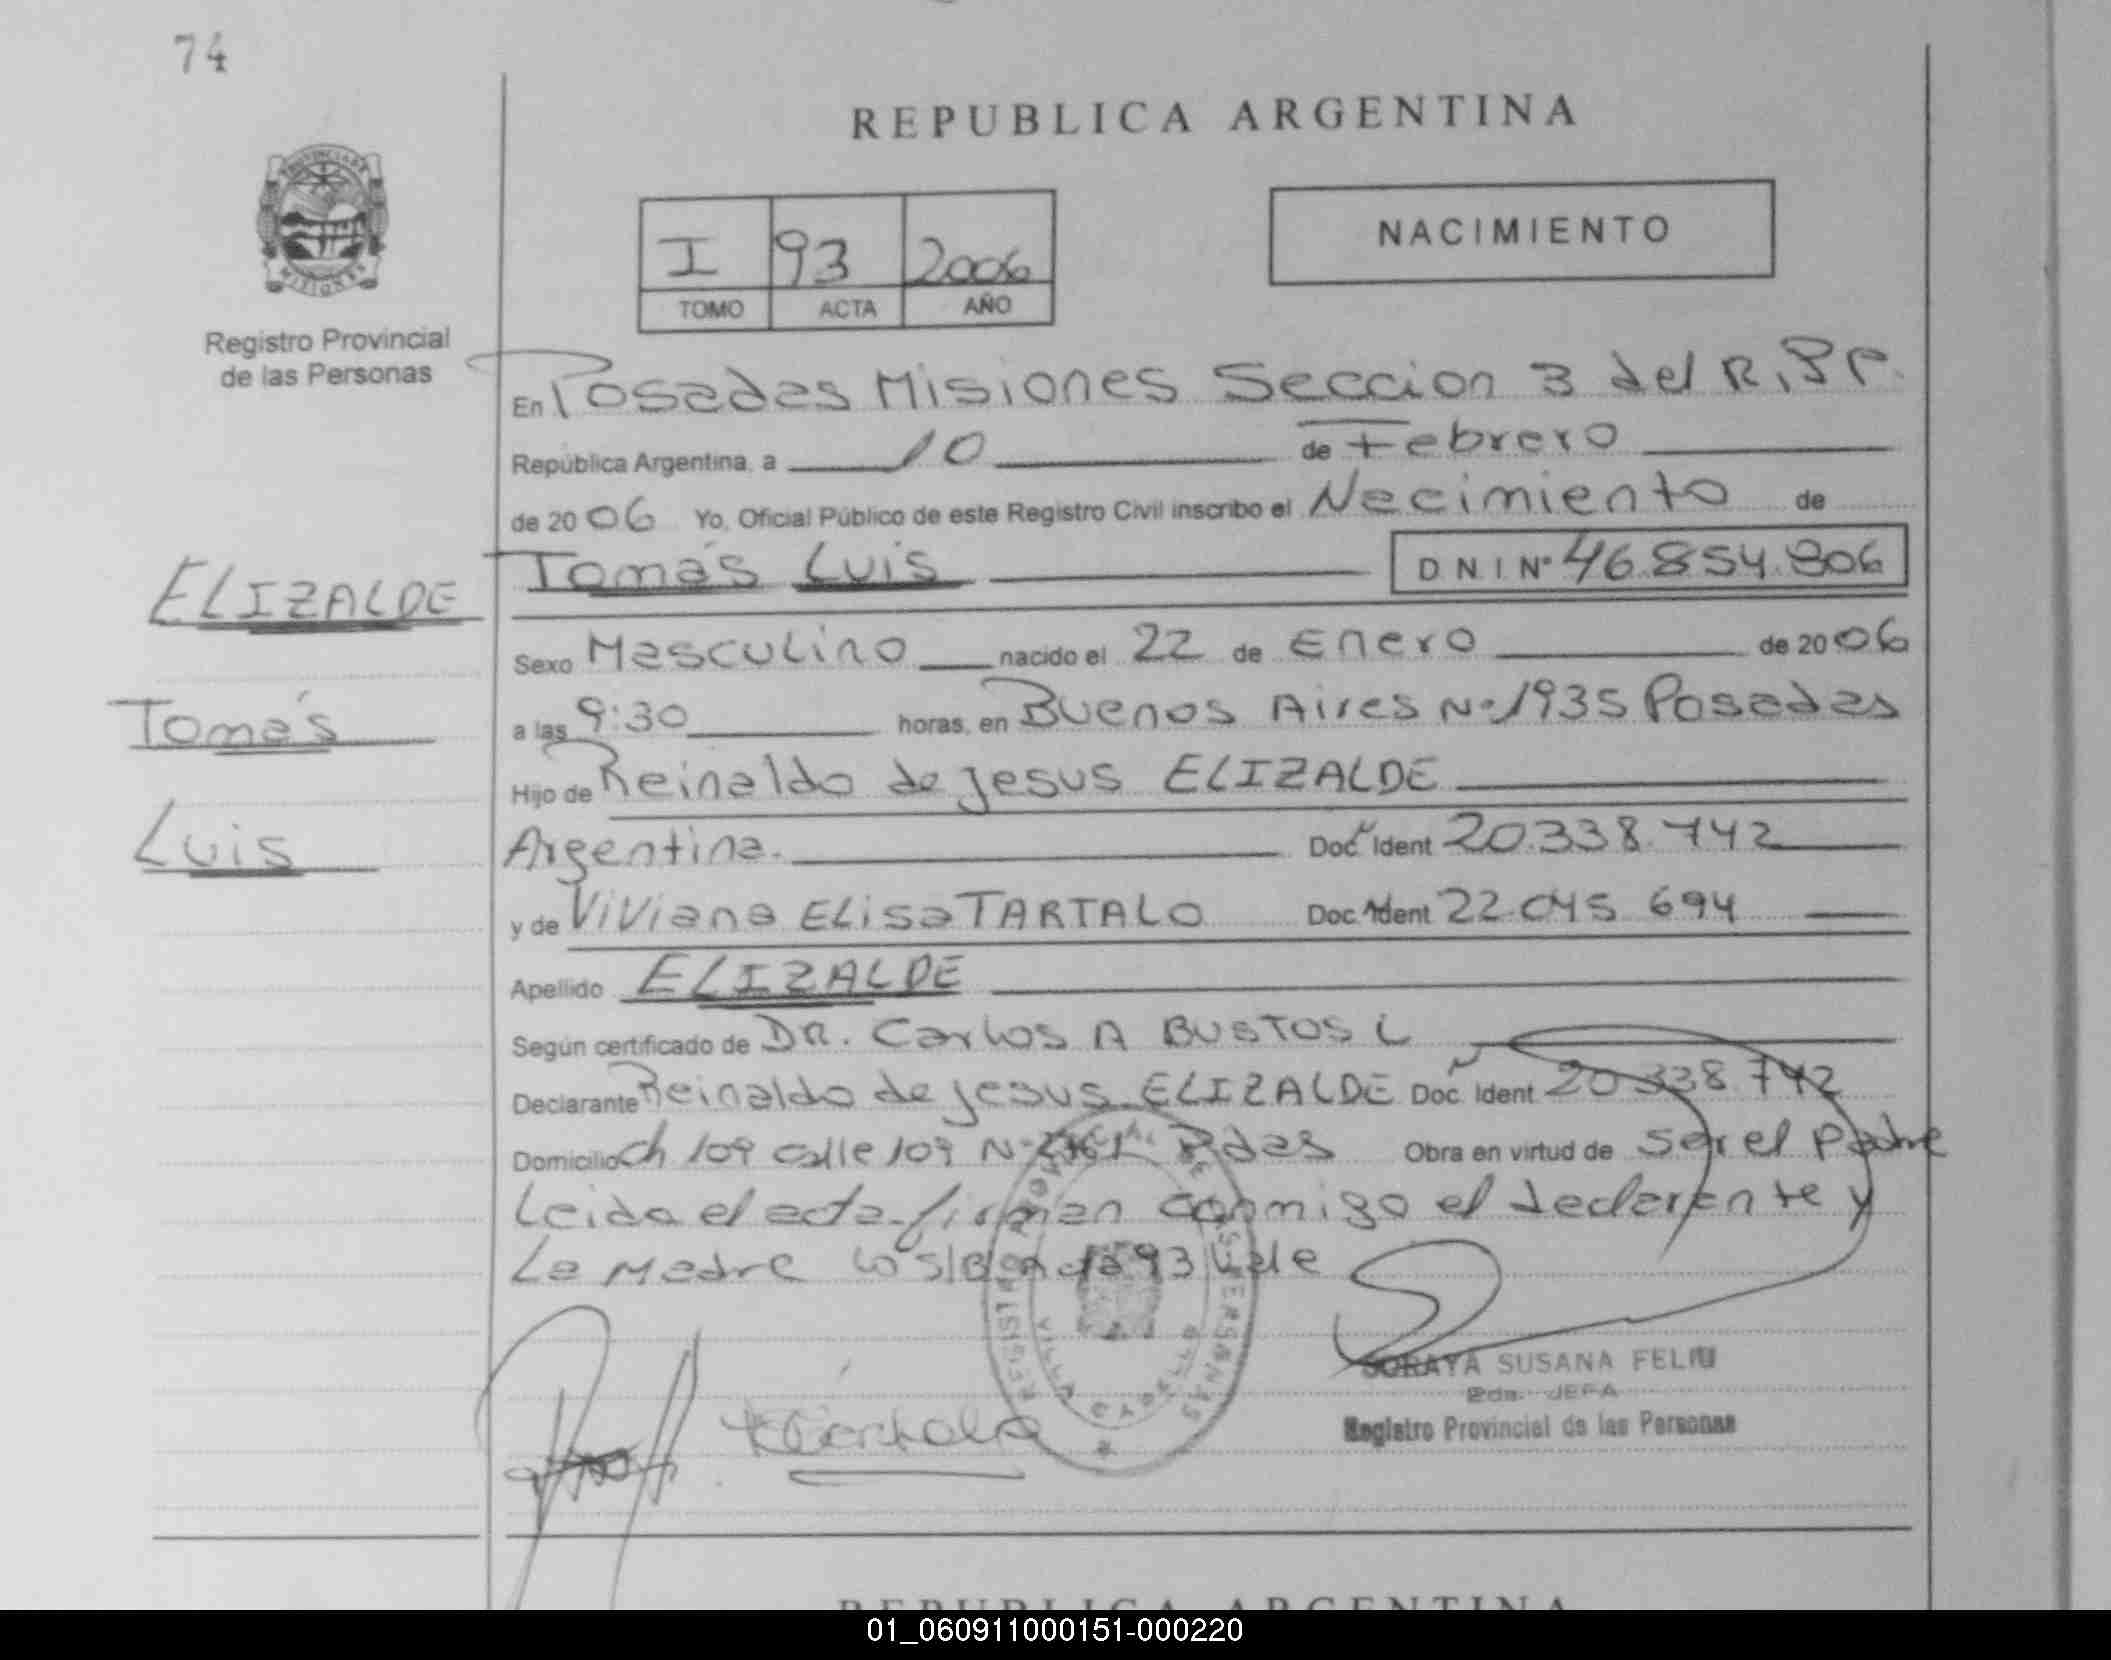 74
REPUBLICA ARGENTINA
PROVINCIA DE
MISIONES
Registro Provincial
de las Personas
I 93 2006
TOMO ACTA AÑO
NACIMIENTO
En Posadas Misiones Seccion 3 del R.P.P.
República Argentina, a 10 de Febrero
de 2006 Yo, Oficial Público de este Registro Civil inscribo el Nacimiento de
Tomás Luis DNI Nº 46.854.806
ELIZALDE
Sexo Masculino nacido el 22 de Enero de 2006
Tomás
a las 9:30 horas, en Buenos Aires Nº 1935 Posadas
Hijo de Reinaldo de Jesus ELIZALDE
Luis
Argentina. Doc Ident 20.338.742
y de Viviana Elisa TARTALO Doc Ident 22.045 694
Apellido ELIZALDE
Según certificado de DR. Carlos A BUSTOS L
Declarante Reinaldo de Jesus ELIZALDE Doc Ident 20 338.742
Domicilio Ch 109 calle 109 Nº Pdas Obra en virtud de ser el padre
Leida el acta firman conmigo el declarante y
La Madre 93 Vale
SORAYA SUSANA FELIU
2da. JEFA
Registro Provincial de las Personas
REPUBLICA ARGENTINA
01_060911000151-000220